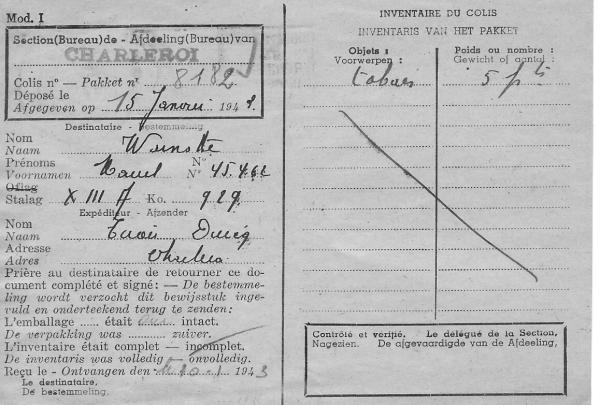 Mod. I
Section(Bureau)de - Afdeeling(Bureau)van
CHARLEROI
Colis n° — Pakket nr 8182
Déposé le
Afgegeven op 15 Janvier 194
Destinataire - Bestemmeling
Nom
Naam
Prénoms N°
Voornamen N° 45.4.62
Oflag
Stalag X III A Ko. 929
Expéditeur - Afzender
Nom
Naam
Adresse
Adres
Prière au destinataire de retourner ce do-
cument complété et signé: — De bestemme-
ling wordt verzocht dit bewijsstuk inge-
vuld en onderteekend terug te zenden:
L'emballage ...... était intact.
De verpakking was ........... zuiver.
L'inventaire était complet — incomplet.
De inventaris was volledig — onvolledig.
Reçu le - Ontvangen den 194 3
Le destinataire,
De bestemmeling.
INVENTAIRE DU COLIS
INVENTARIS VAN HET PAKKET
Objets : Poids ou nombre :
Voorwerpen : Gewicht of aantal :
tabacs 5 pts
Contrôlé et vérifié. Le délégué de la Section,
Nagezien. De afgevaardigde van de Afdeeling,